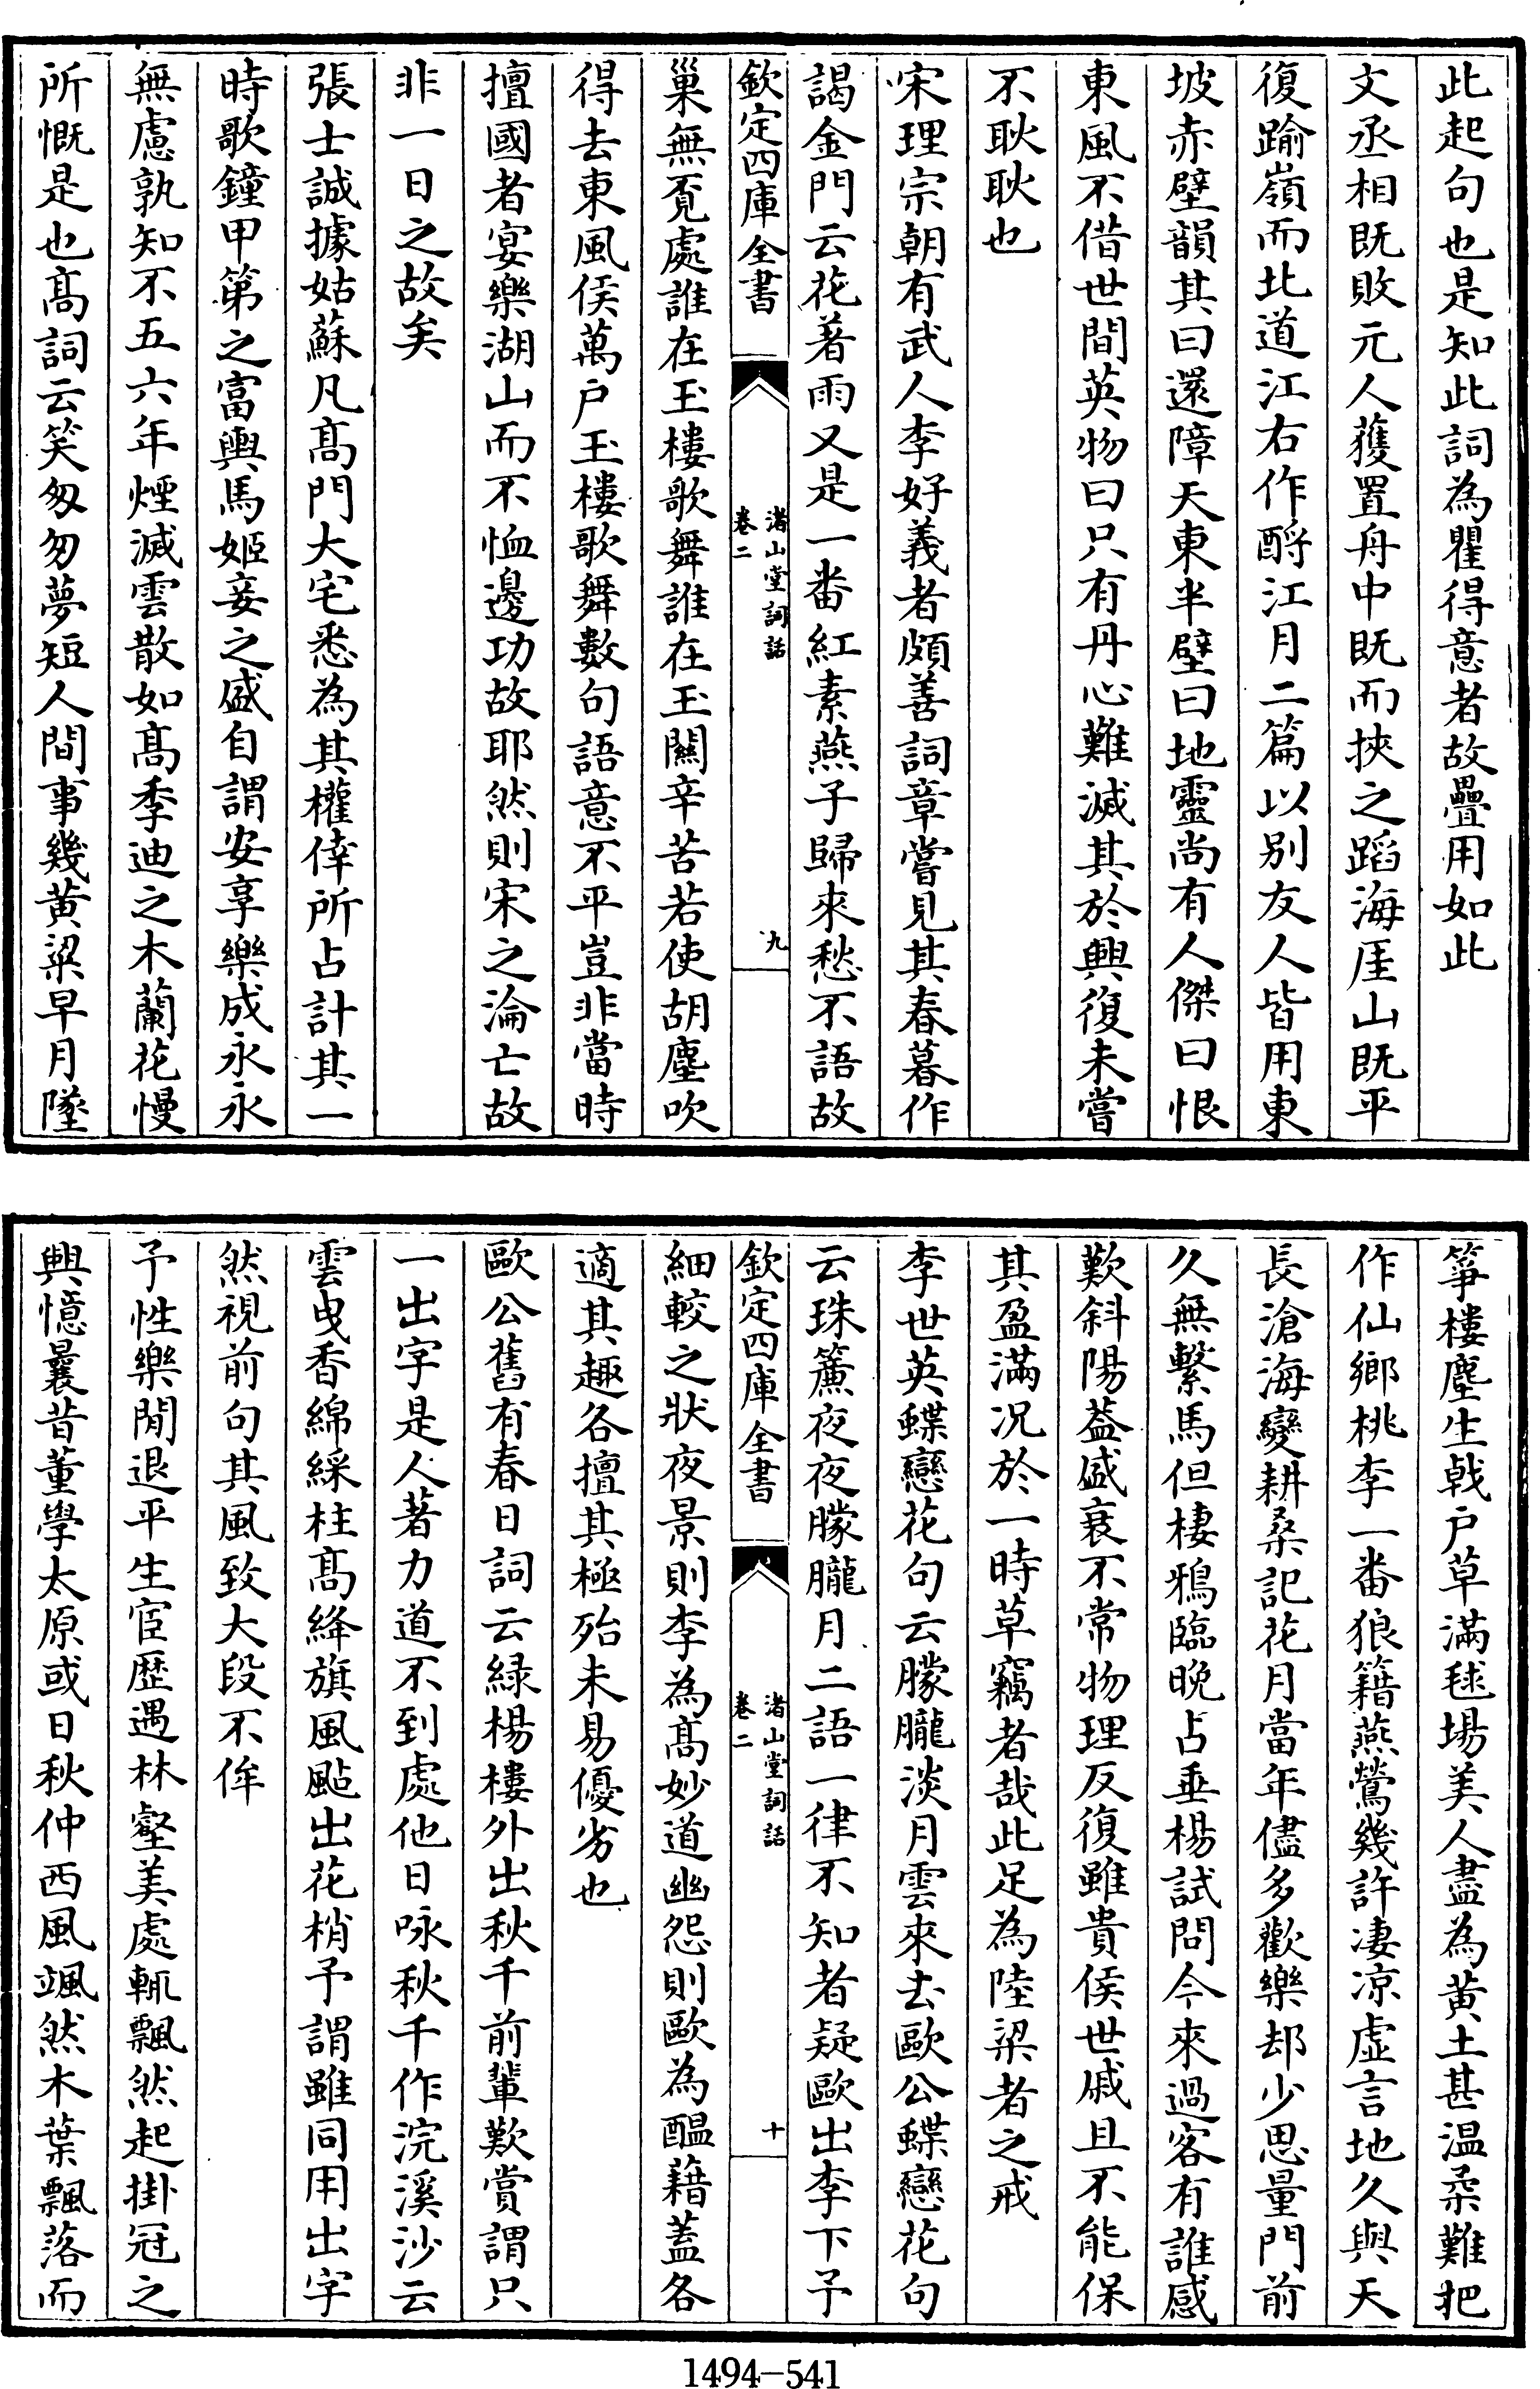 此起句也是知此詞為瞿得意者故疊用如此
文丞相既敗元人獲置舟中既而挾之蹈海厓山既平
復踰嶺而北道江右作酹江月二篇以别友人皆用東
坡赤壁韻其曰還障天東半壁曰地靈尚有人傑曰恨
東風不借世間英物曰只有丹心難滅其於興復未嘗
不耿耿也
宋理宗朝有武人李好義者頗善詞章嘗見其春暮作
謁金門云花著雨又是一番紅素燕子歸來愁不語故
欽定四庫全書
渚山堂詞話
卷二
九
巢無覔處誰在玉樓歌舞誰在玉關辛苦若使胡塵吹
得去東風侯萬户玉樓歌舞數句語意不平豈非當時
擅國者宴樂湖山而不恤邊功故耶然則宋之淪亡故
非一日之故矣
張士誠據姑蘇凡髙門大宅悉為其權倖所占計其一
時歌鐘甲第之富輿馬姬妾之盛自謂安享樂成永永
無慮孰知不五六年煙滅雲散如髙季迪之木蘭花慢
所慨是也髙詞云笑匆匆夢短人間事幾黄粱早月墜
筝樓塵生戟户草滿毬場美人盡為黄土甚温柔難把
作仙鄉桃李一番狼籍燕鶯幾許凄凉虚言地久與天
長滄海變耕桑記花月當年儘多歡樂却少思量門前
久無繫馬但棲鴉臨晚占垂楊試問今來過客有誰感
歎斜陽葢盛衰不常物理反復雖貴侯世戚且不能保
其盈滿况於一時草竊者哉此足為陸梁者之戒
李世英蝶戀花句云朦朧淡月雲來去歐公蝶戀花句
云珠簾夜夜朦朧月二語一律不知者疑歐出李下予
欽定四庫全書
渚山堂詞話
卷二
十
細較之狀夜景則李為髙妙道幽怨則歐為醖藉蓋各
適其趣各擅其極殆未易優劣也
歐公舊有春日詞云緑楊樓外出秋千前輩歎賞謂只
一出字是人著力道不到處他日咏秋千作浣溪沙云
雲曳香綿綵柱髙絳旗風颭出花梢予謂雖同用出字
然視前句其風致大段不侔
予性樂閒退平生宦歴遇林壑美處輒飄然起掛冠之
興憶曩昔董學太原或日秋仲西風颯然木葉飄落而
1494-541